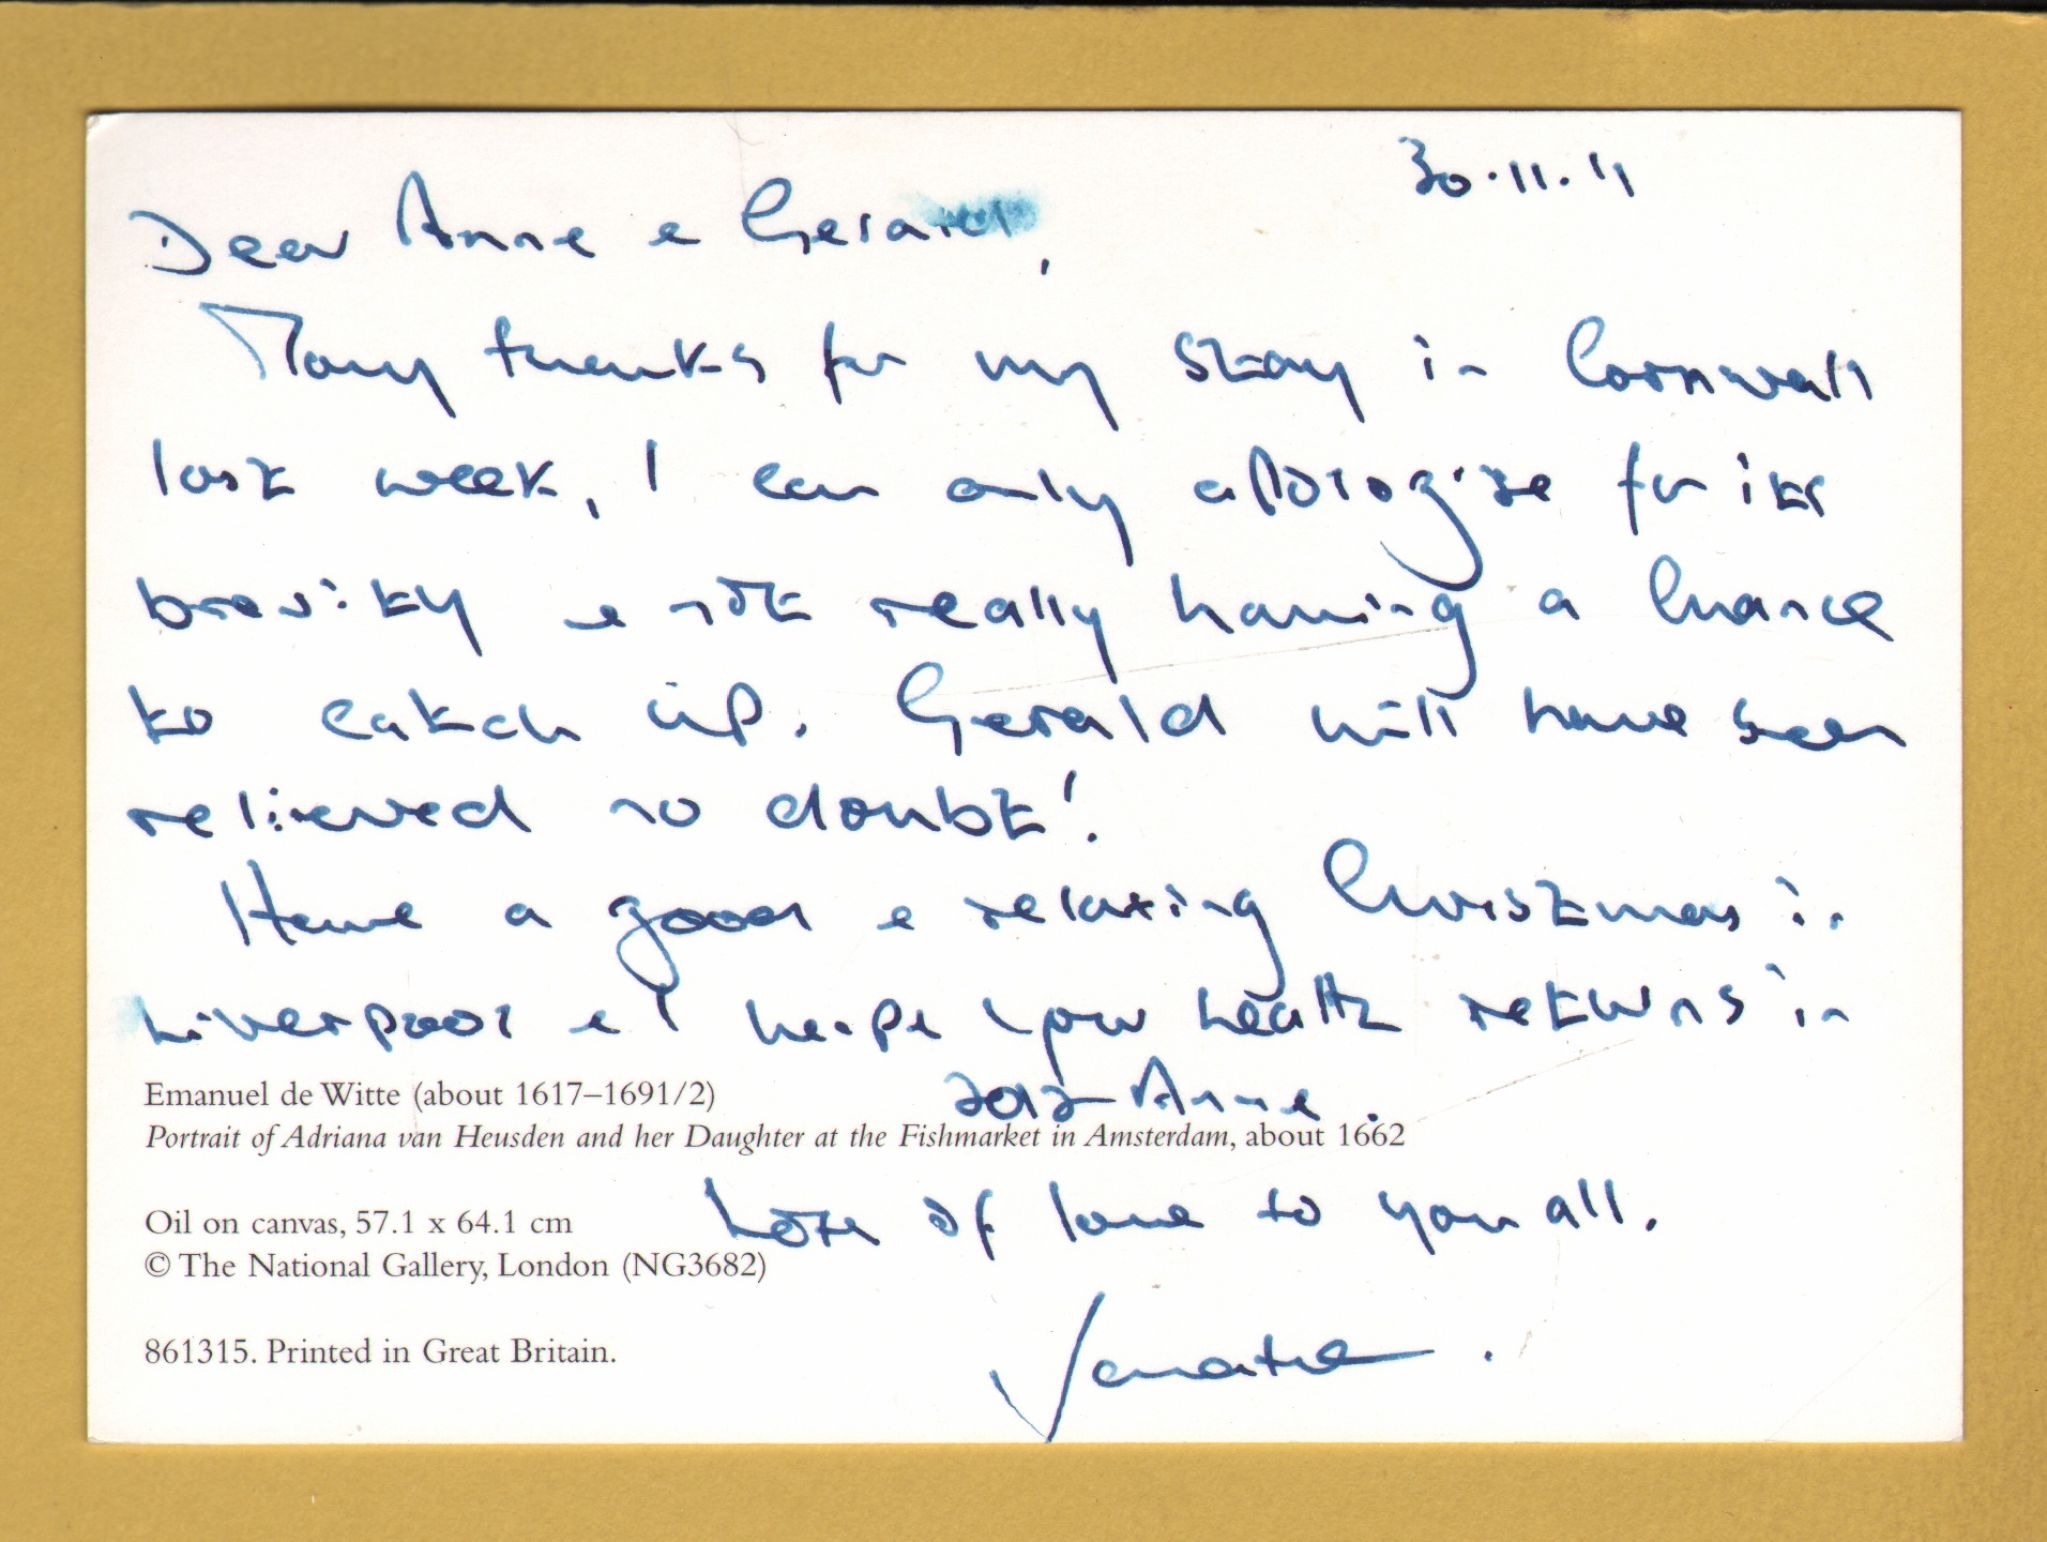 30.11.11
Dear Anne & Gerald,
Many thanks for my stay in Cornwall
last week, I can only apologize for its
brevity & not really having a chance
to catch up. Gerald will have been
relieved no doubt!
Have a good & relaxing Christmas in
Liverpool & I hope your health returns in
2012 Anne.
Emanuel de Witte (about 1617–1691/2)
Portrait of Adriana van Heusden and her Daughter at the Fishmarket in Amsterdam, about 1662
Lots of love to you all.
Oil on canvas, 57.1 x 64.1 cm
© The National Gallery, London (NG3682)
Jonathan.
861315. Printed in Great Britain.